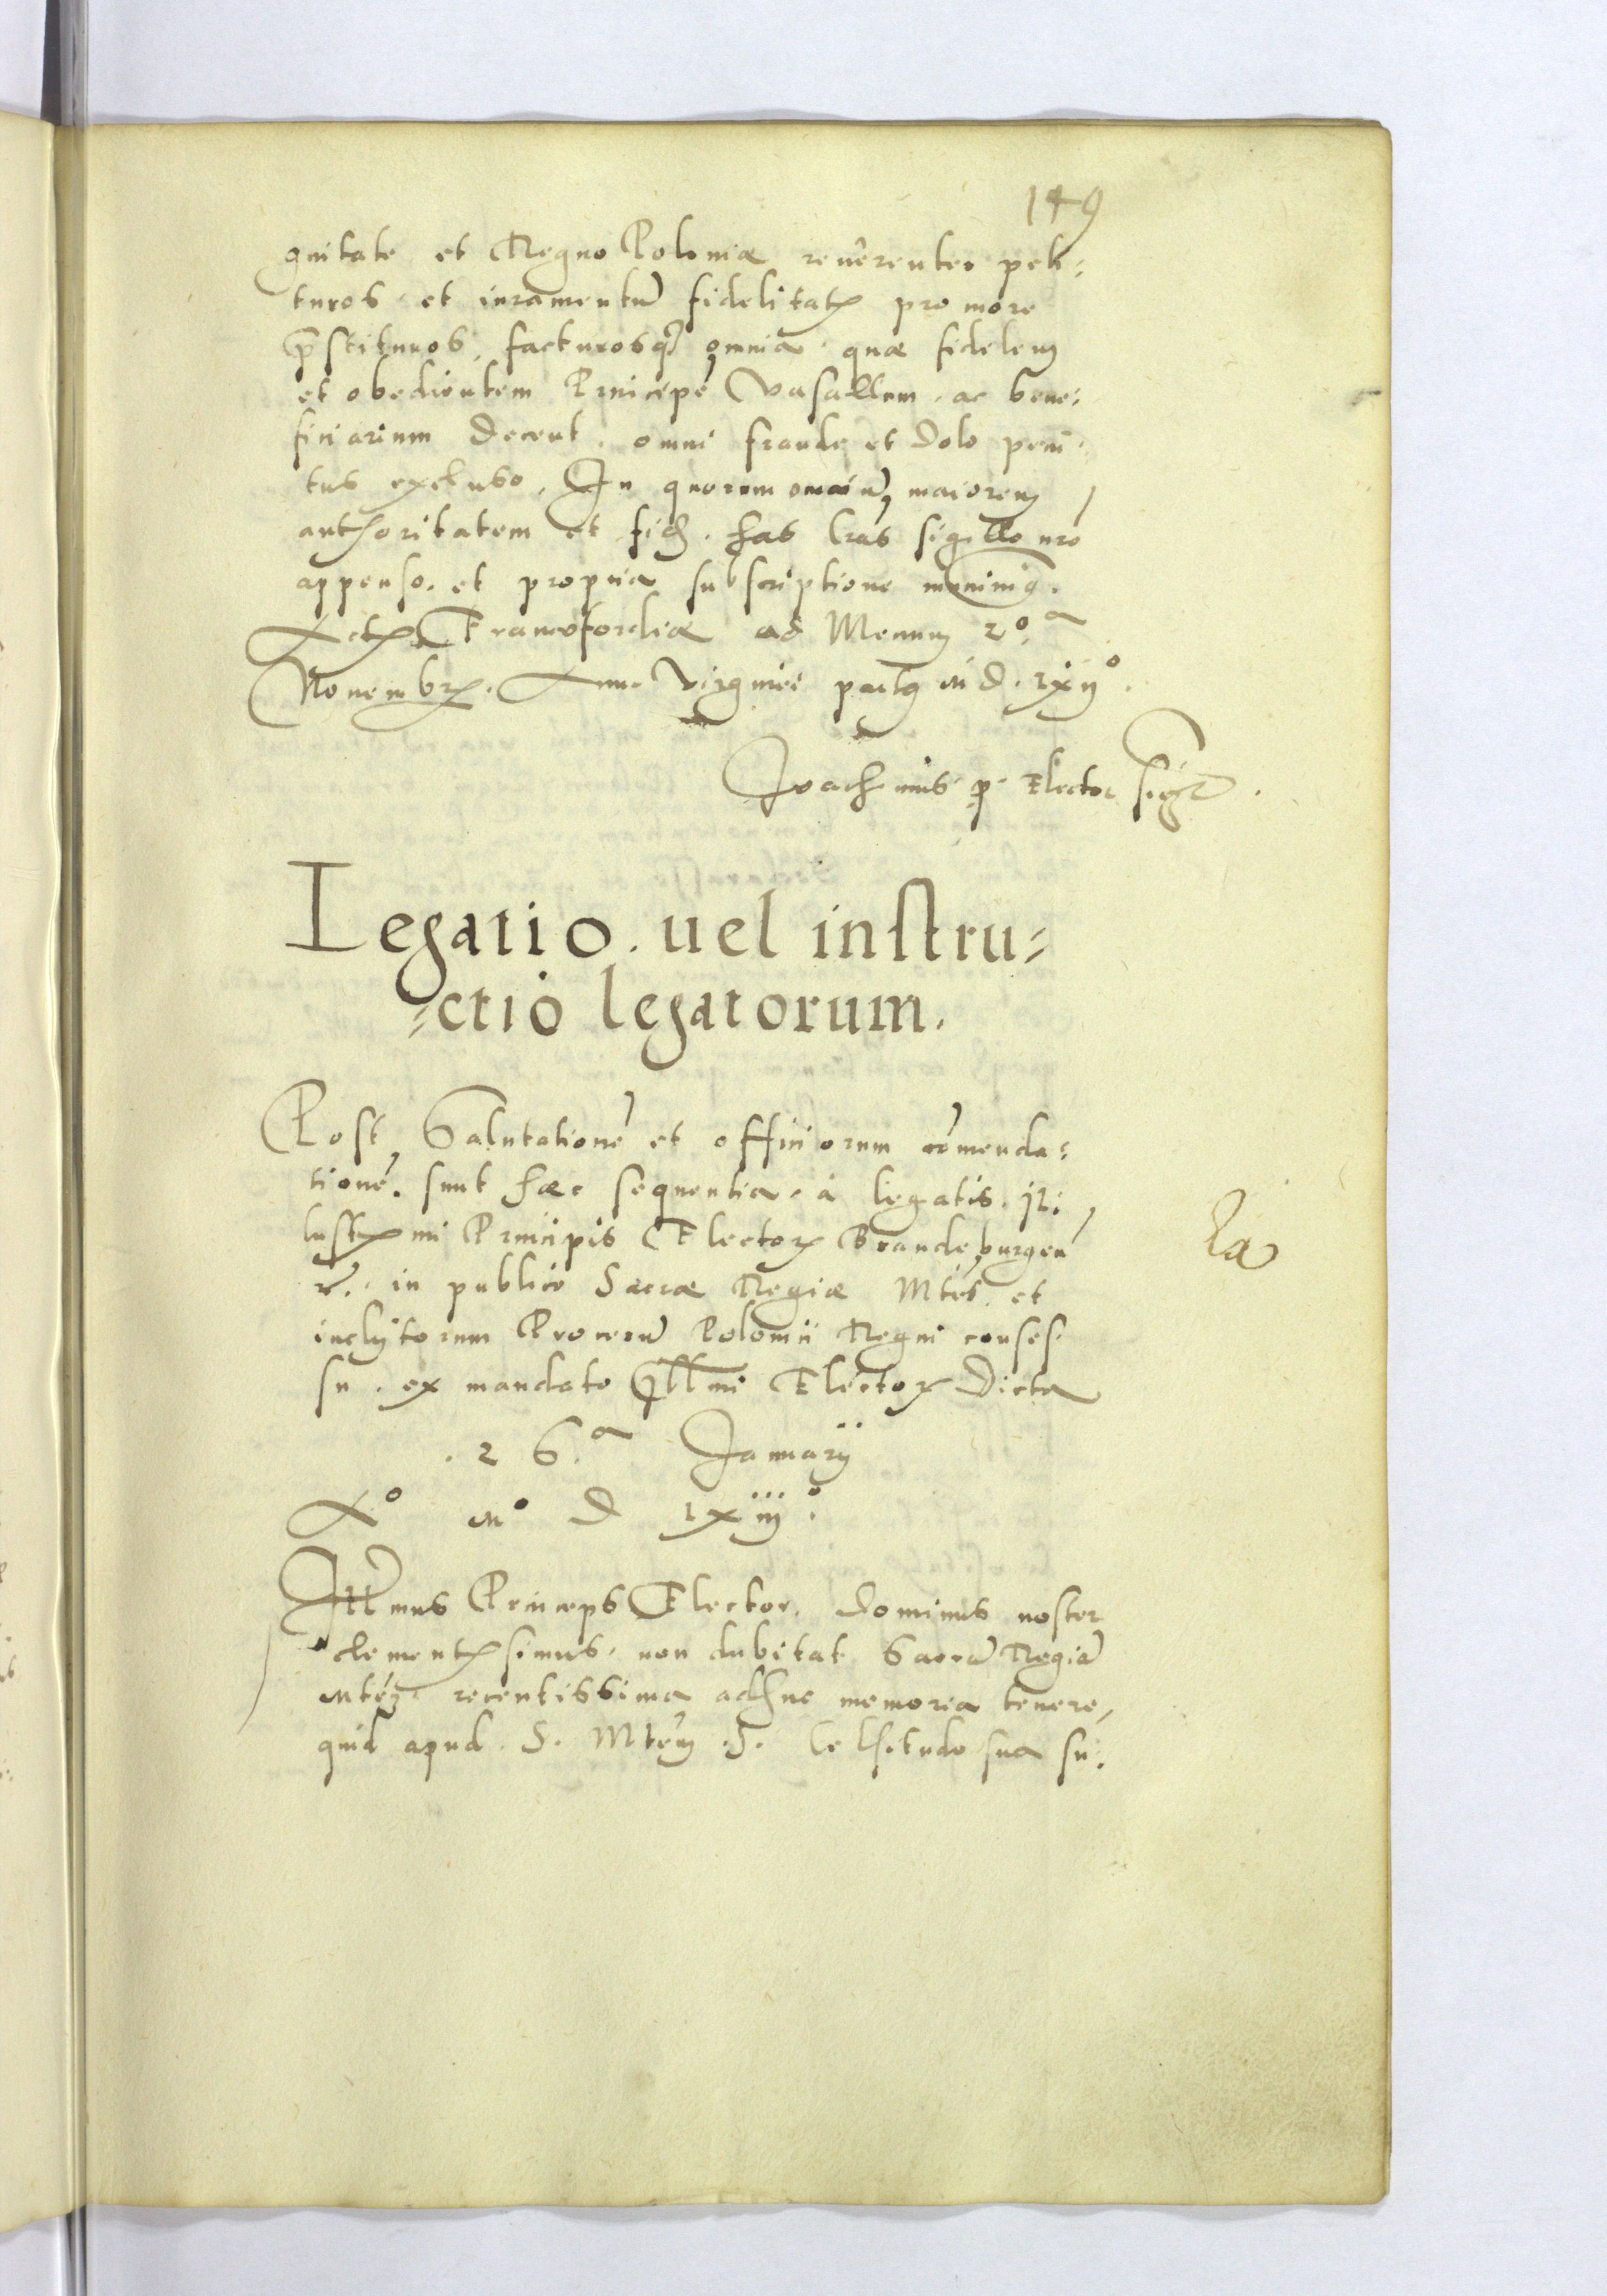 149
gnitate et Regno Poloniæ reuerenter peti⸗
turos et iuramentū fidelitatꝭ pro more
p̄stituros, facturosqꝫ omnia quæ fidelem
et obedientem Principē Vasallum ac bene⸗
ficiarium decent, omni fraude et dolo peni⸗
tus excluso, In quorum omniū maiorem
authoritatem et fidē has lr̄as sigillo nr̄o
appenso et propria subscriptione muniuimꝰ.
Actꝭ Francofordiæ ad Menum 20ᵃ
Nouembrꝭ. Anno Virginei partꝰ M D. lxijᵒ.
Joachimus p. Elector
Legatio. uel instru⸗
⸗ctio legatorum.
Post Salutationē et officiorum cōmenda⸗
tionē. sunt hæc sequentia à legatis Il⸗
lustrꝭmi Principis Electorꝭ Brandeburgeñ
in publico Sacræ Regiæ Mtis et
inclytorum Procerū Polonii Regni conses⸗
su ex mandato Illmi Electorꝭ dicta
. 26.ᵃ Januarij
Aᵒ Mᵒ D lxiijᵒ.
Illmus Princeps Elector, dominus noster
clementꝭsimus, non dubitat Sacrā Regiā
Mtēm recentissima adhuc memoria tenere,
quid apud S. Mtēm S. Celsitudo sua su⸗